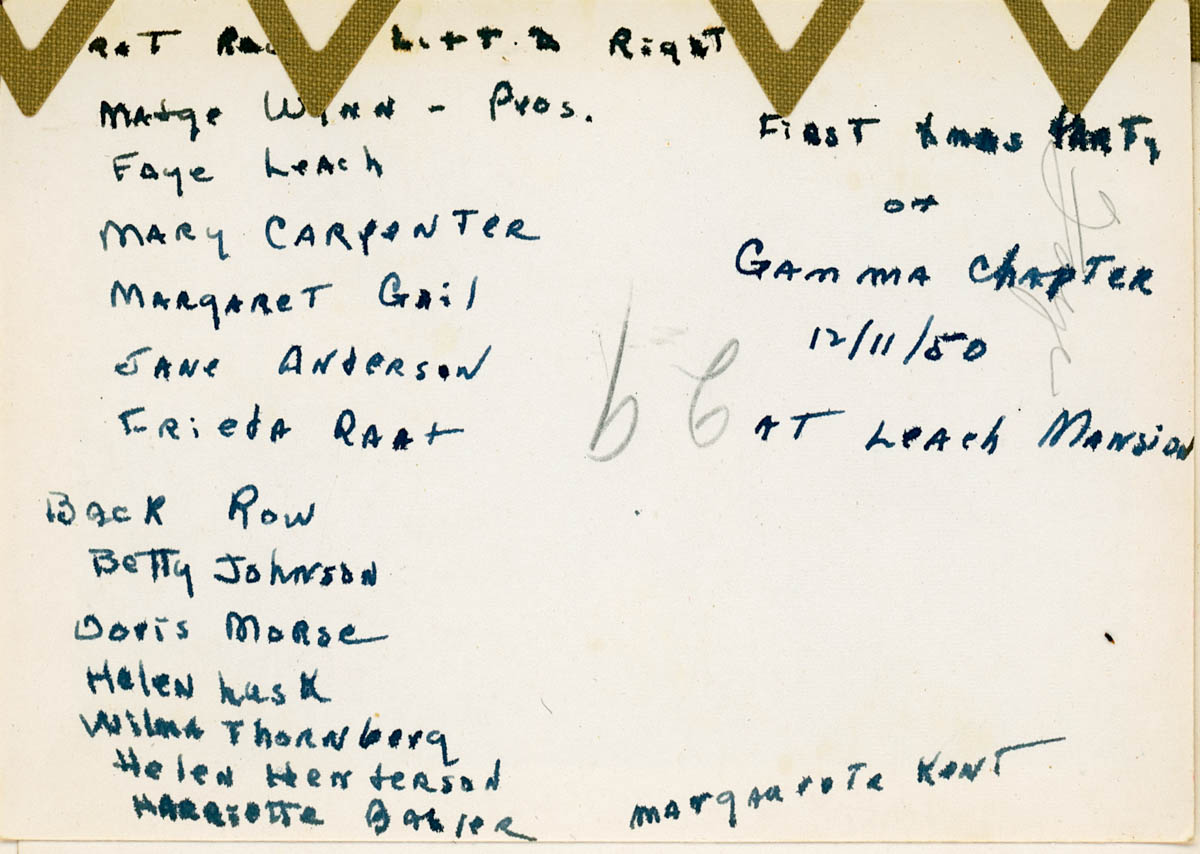 Left to Right
Madge Winn - Pres.
Faye Leach
Mary Carpenter
Margaret Gail
Jane Anderson
Frieda Raat
Back Row
Betty Johnson
Doris Morse
Helen Lusk
Wilma Thornberg
Helen Henderson
Harriotte
Marguerete Kent
First Xmas Party
of
Gamma Chapter
12/11/50
at Leach Mansion